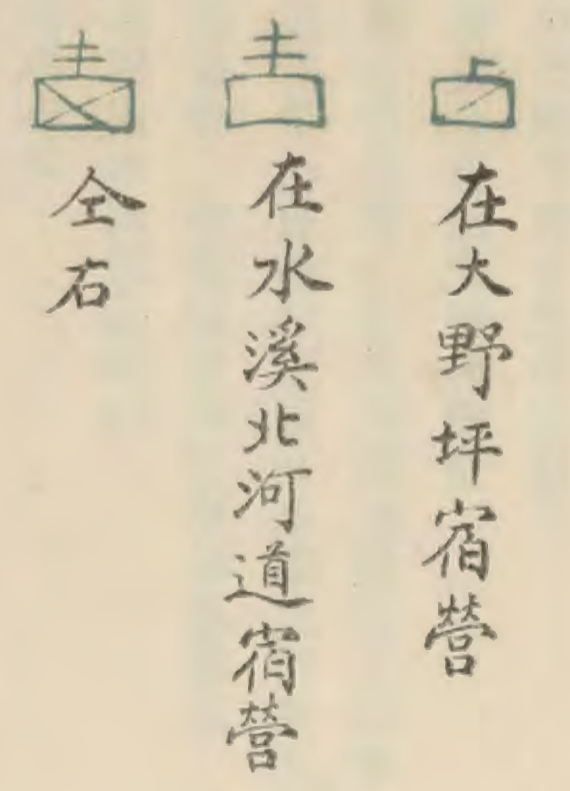 在大野坪宿營
在水溪北河道宿營
仝右